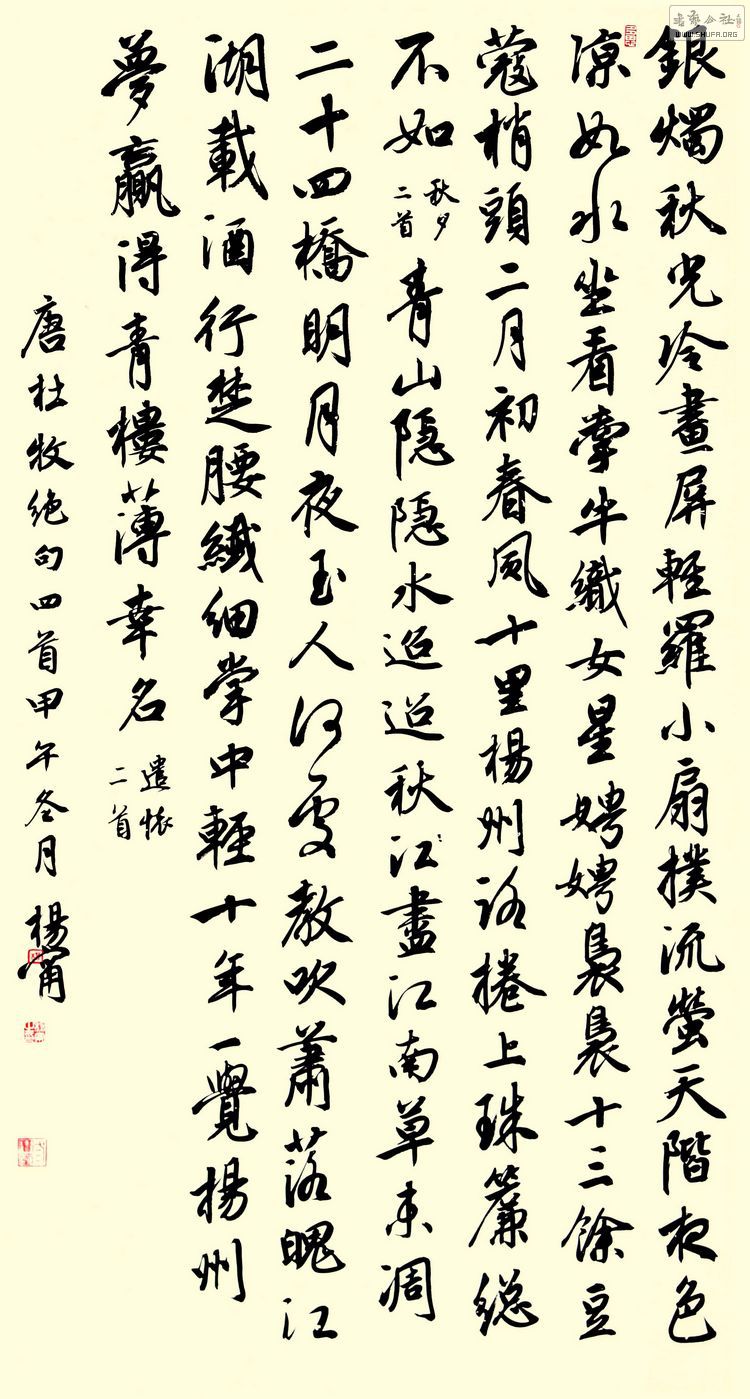 銀燭秋光冷畫屏輕羅小扇撲流螢天階夜色
涼如水坐看牽牛織女星娉娉裊裊十三餘豆
蔻梢頭二月初春風十里楊州路捲上珠簾總
不如
秋夕
二首
青山隱隱水迢迢秋江盡江南草未凋
二十四橋明月夜玉人何處教吹蕭落魄江
湖載酒行楚腰纖細掌中輕十年一覺楊州
夢贏得青樓薄幸名
遣懷
二首
唐杜牧絕句四首甲午冬月楊甯
WWW.SHUFA.ORG